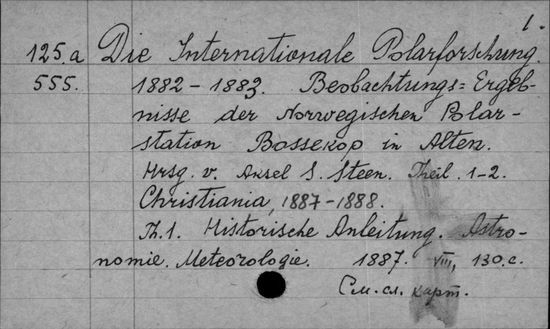 1.
125.a Die Internationale Polarforschung.
555. 1882-1883. Beobachtungs=Ergeb-
nisse der Norwegischen Polar-
station Bossekop in Alten.
Hrsg. v. Aksel S. Steen. Theil. 1-2.
Christiania, 1887-1888.
Th.1. Historische Anleitung. Astro-
nomie. Meteorologie. 1887. VIII, 130.c.
См. сл. карт.